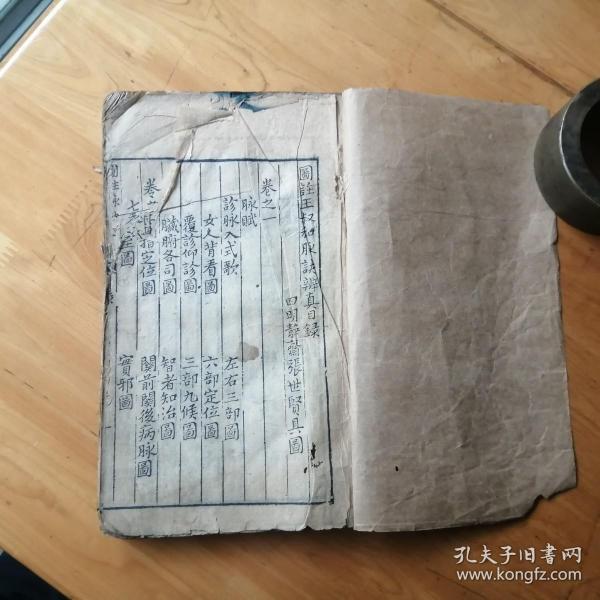 圖註王叔和脉訣辨真目錄
四明靜齋張世賢具圖
卷之一
脉賦
診脉入式歌 左右三部圖
女人背看圖 六部定位圖
覆診仰診圖 三部九候圖
臟腑各司圖 智者知治圖
指定位圖 關前關後病脉圖
圖 實邪圖
孔夫子旧书网
www.kongfz.com